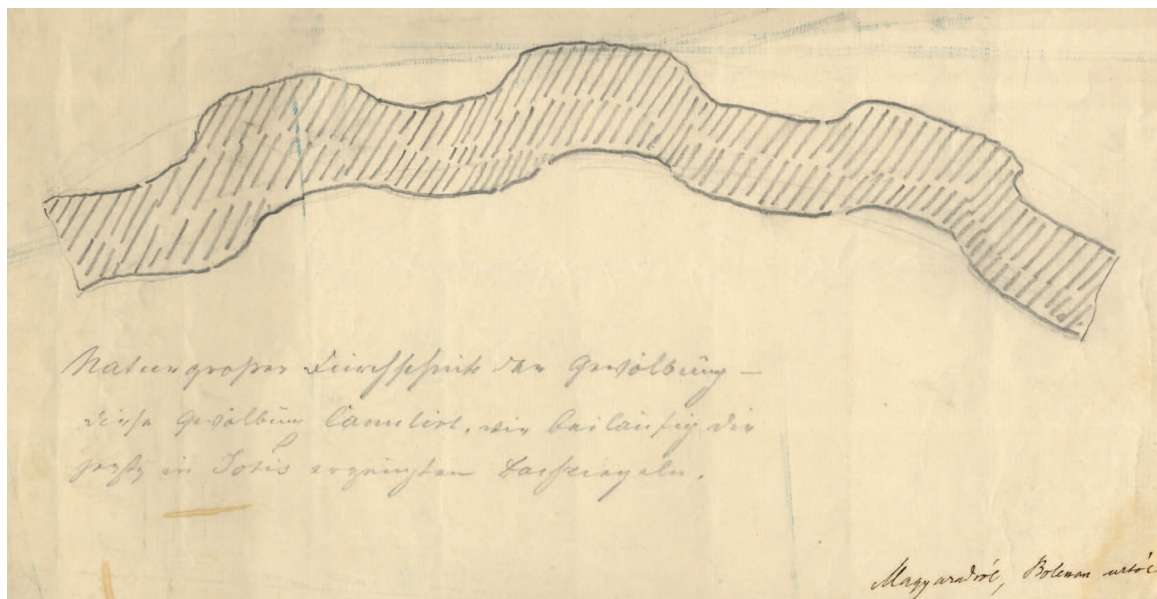 Naturgroßer Durchschnitt der Gewölbung –
diese Gewölbung cannelirt, wie beiläufig die
jetzt in Totis erzeugten Dachziegeln.
Magyaradról, Boleman úrtól